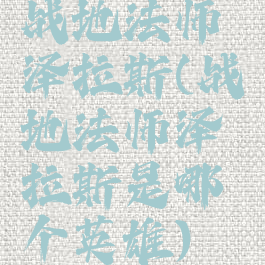 战地法师
泽拉斯(战
地法师泽
拉斯是哪
个英雄)